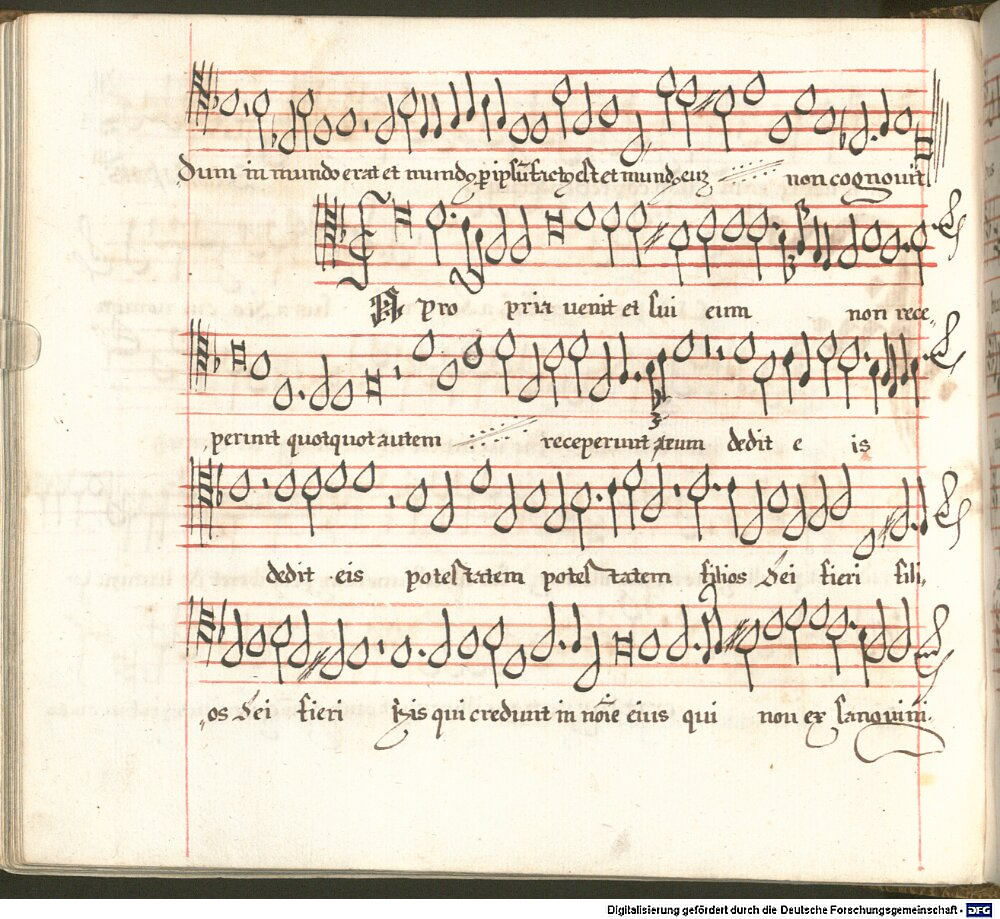 dum in mundo erat et mundꝯ p ipsū factꝯ est et mundꝯ euz non cognouit
In pro pria uenit et sui eum non rece-
perunt quotquot autem receperunt eum dedit e is
dedit eis potestatem potestatem filios dei fieri fili-
-os dei fieri his qui credunt in noīe eius qui non ex sanguini-
Digitalisierung gefördert durch die Deutsche Forschungsgemeinschaft - DFG